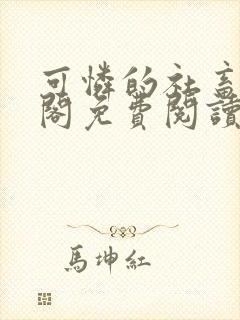 可憐的社畜
閣免費閱讀
馬坤紅